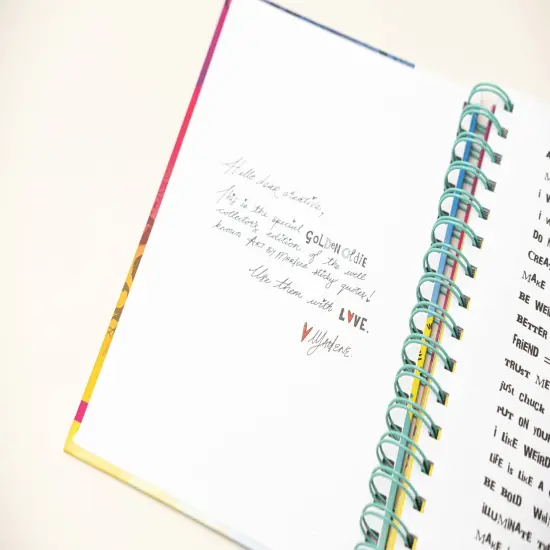 Hello dear creative,
This is the special GOLDEN OLDIE
collectors edition of the well
known Art By Marlene sticky quotes!
Use them with LOVE.
Marlene.
A
M
i W
i W
DO
CREA
MAKE
BE WEI
BETTER
FRiEND =
TRUST ME
just chuck
PUT ON YOUR
i LiKE WEiRD
LiFE is LiKE A
BE BOLD
iLLUMiNATE T
MAKE